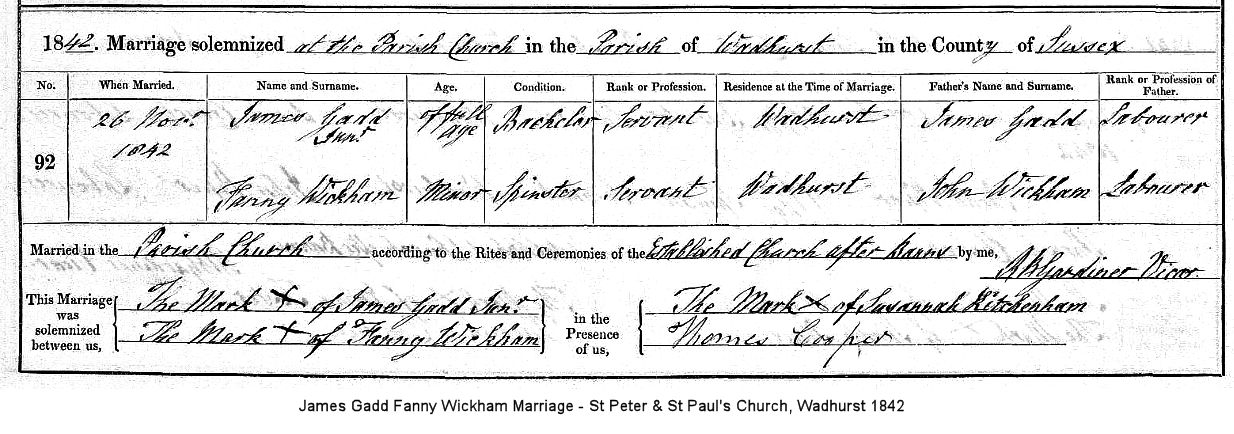 1842. Marriage solemnized at the Parish Church in the Parish of Wadhurst in the County of Sussex
No. When Married. Name and Surname. Age. Condition. Rank or Profession. Residence at the Time of Marriage. Father's Name and Surname. Rank or Profession of Father.
92 26 Novr. 1842 James Gadd Junr. of full age Bachelor Servant Wadhurst James Gadd Labourer
Fanny Wickham Minor Spinster Servant Wadhurst John Wickham Labourer
Married in the Parish Church according to the Rites and Ceremonies of the Established Church after Banns by me,
Gardiner Vicar
This Marriage was solemnized between us,
The Mark X of James Gadd Junr.
The Mark X of Fanny Wickham
in the Presence of us,
The Mark X of Susannah Kitchenham
Thomas Cooper
James Gadd Fanny Wickham Marriage - St Peter & St Paul's Church, Wadhurst 1842